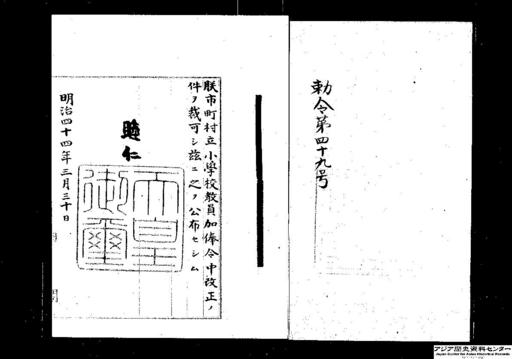 勅令第四十九号
朕市町村立小学校教員加俸令中改正ノ
件ヲ裁可シ茲ニ之ヲ公布セシム
睦仁
天皇御璽
明治四十四年三月三十日
アジア歴史資料センター
Japan Center for Asian Historical Records